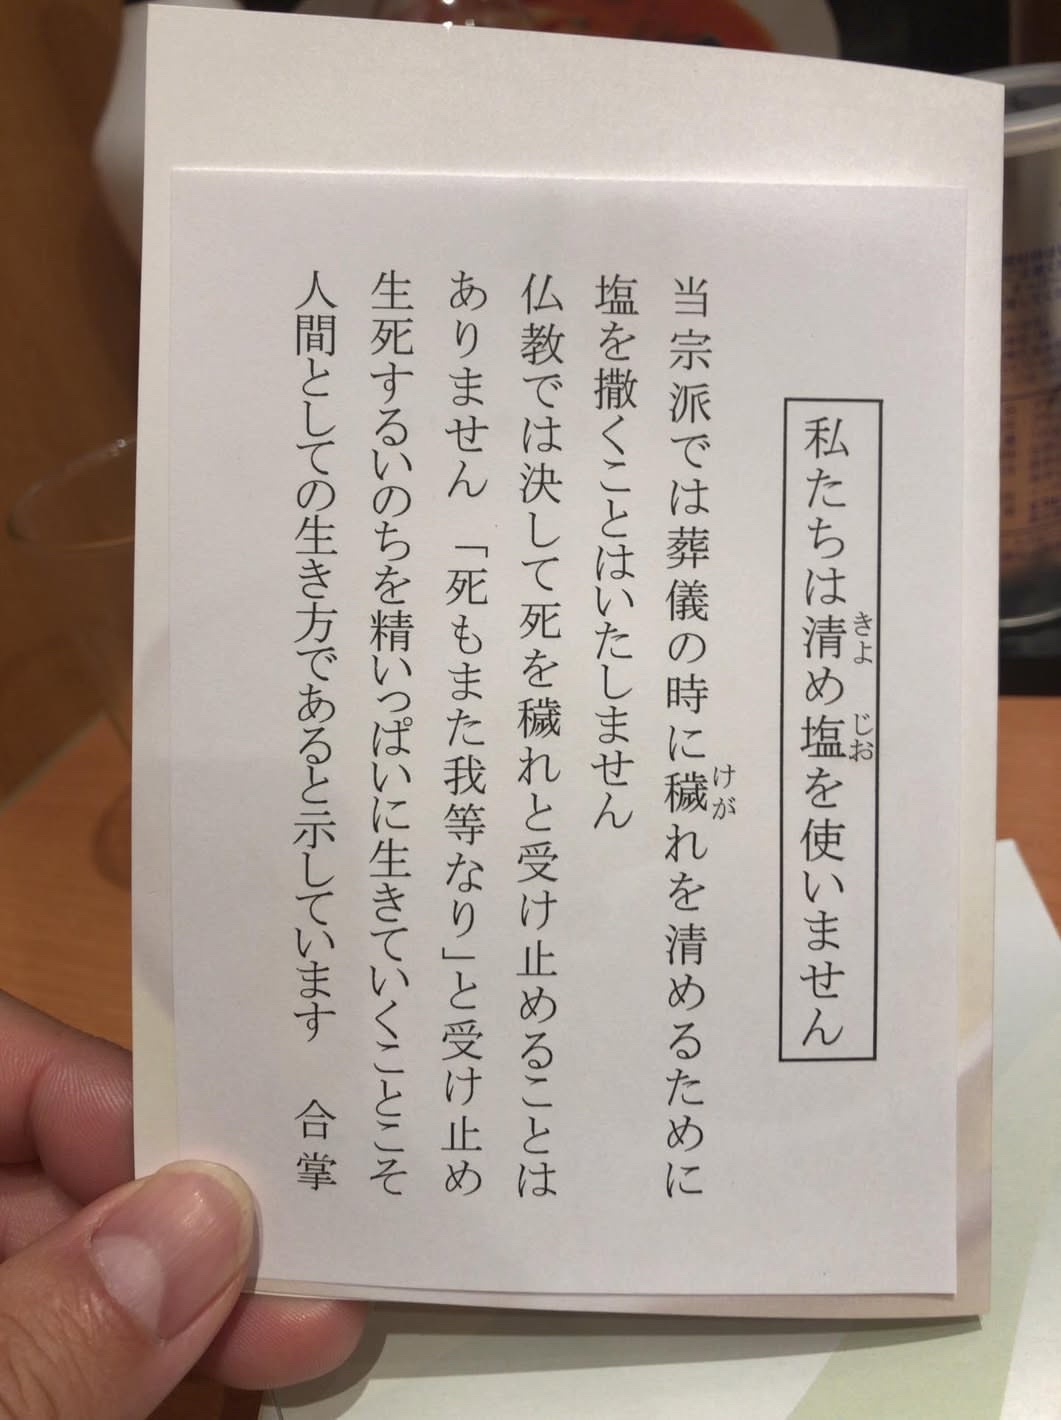 私たちは清め塩を使いません
きよ じお
当宗派では葬儀の時に穢れを清めるために
けが
塩を撒くことはいたしません
仏教では決して死を穢れと受け止めることは
ありません 「死もまた我等なり」と受け止め
生死するいのちを精いっぱいに生きていくことこそ
人間としての生き方であると示しています 合掌